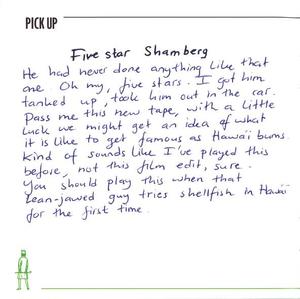 PICK UP
Five star Shamberg
He had never done anything like that
one. Oh my, five stars. I got him
tanked up, took him out in the car.
Pass me this new tape, with a little
luck we might get an idea of what
it is like to get famous as Hawaii bums.
Kind of sounds like I've played this
before, not this film edit, sure.
You should play this when that
lean-jawed guy tries shellfish in Hawaii
for the first time.